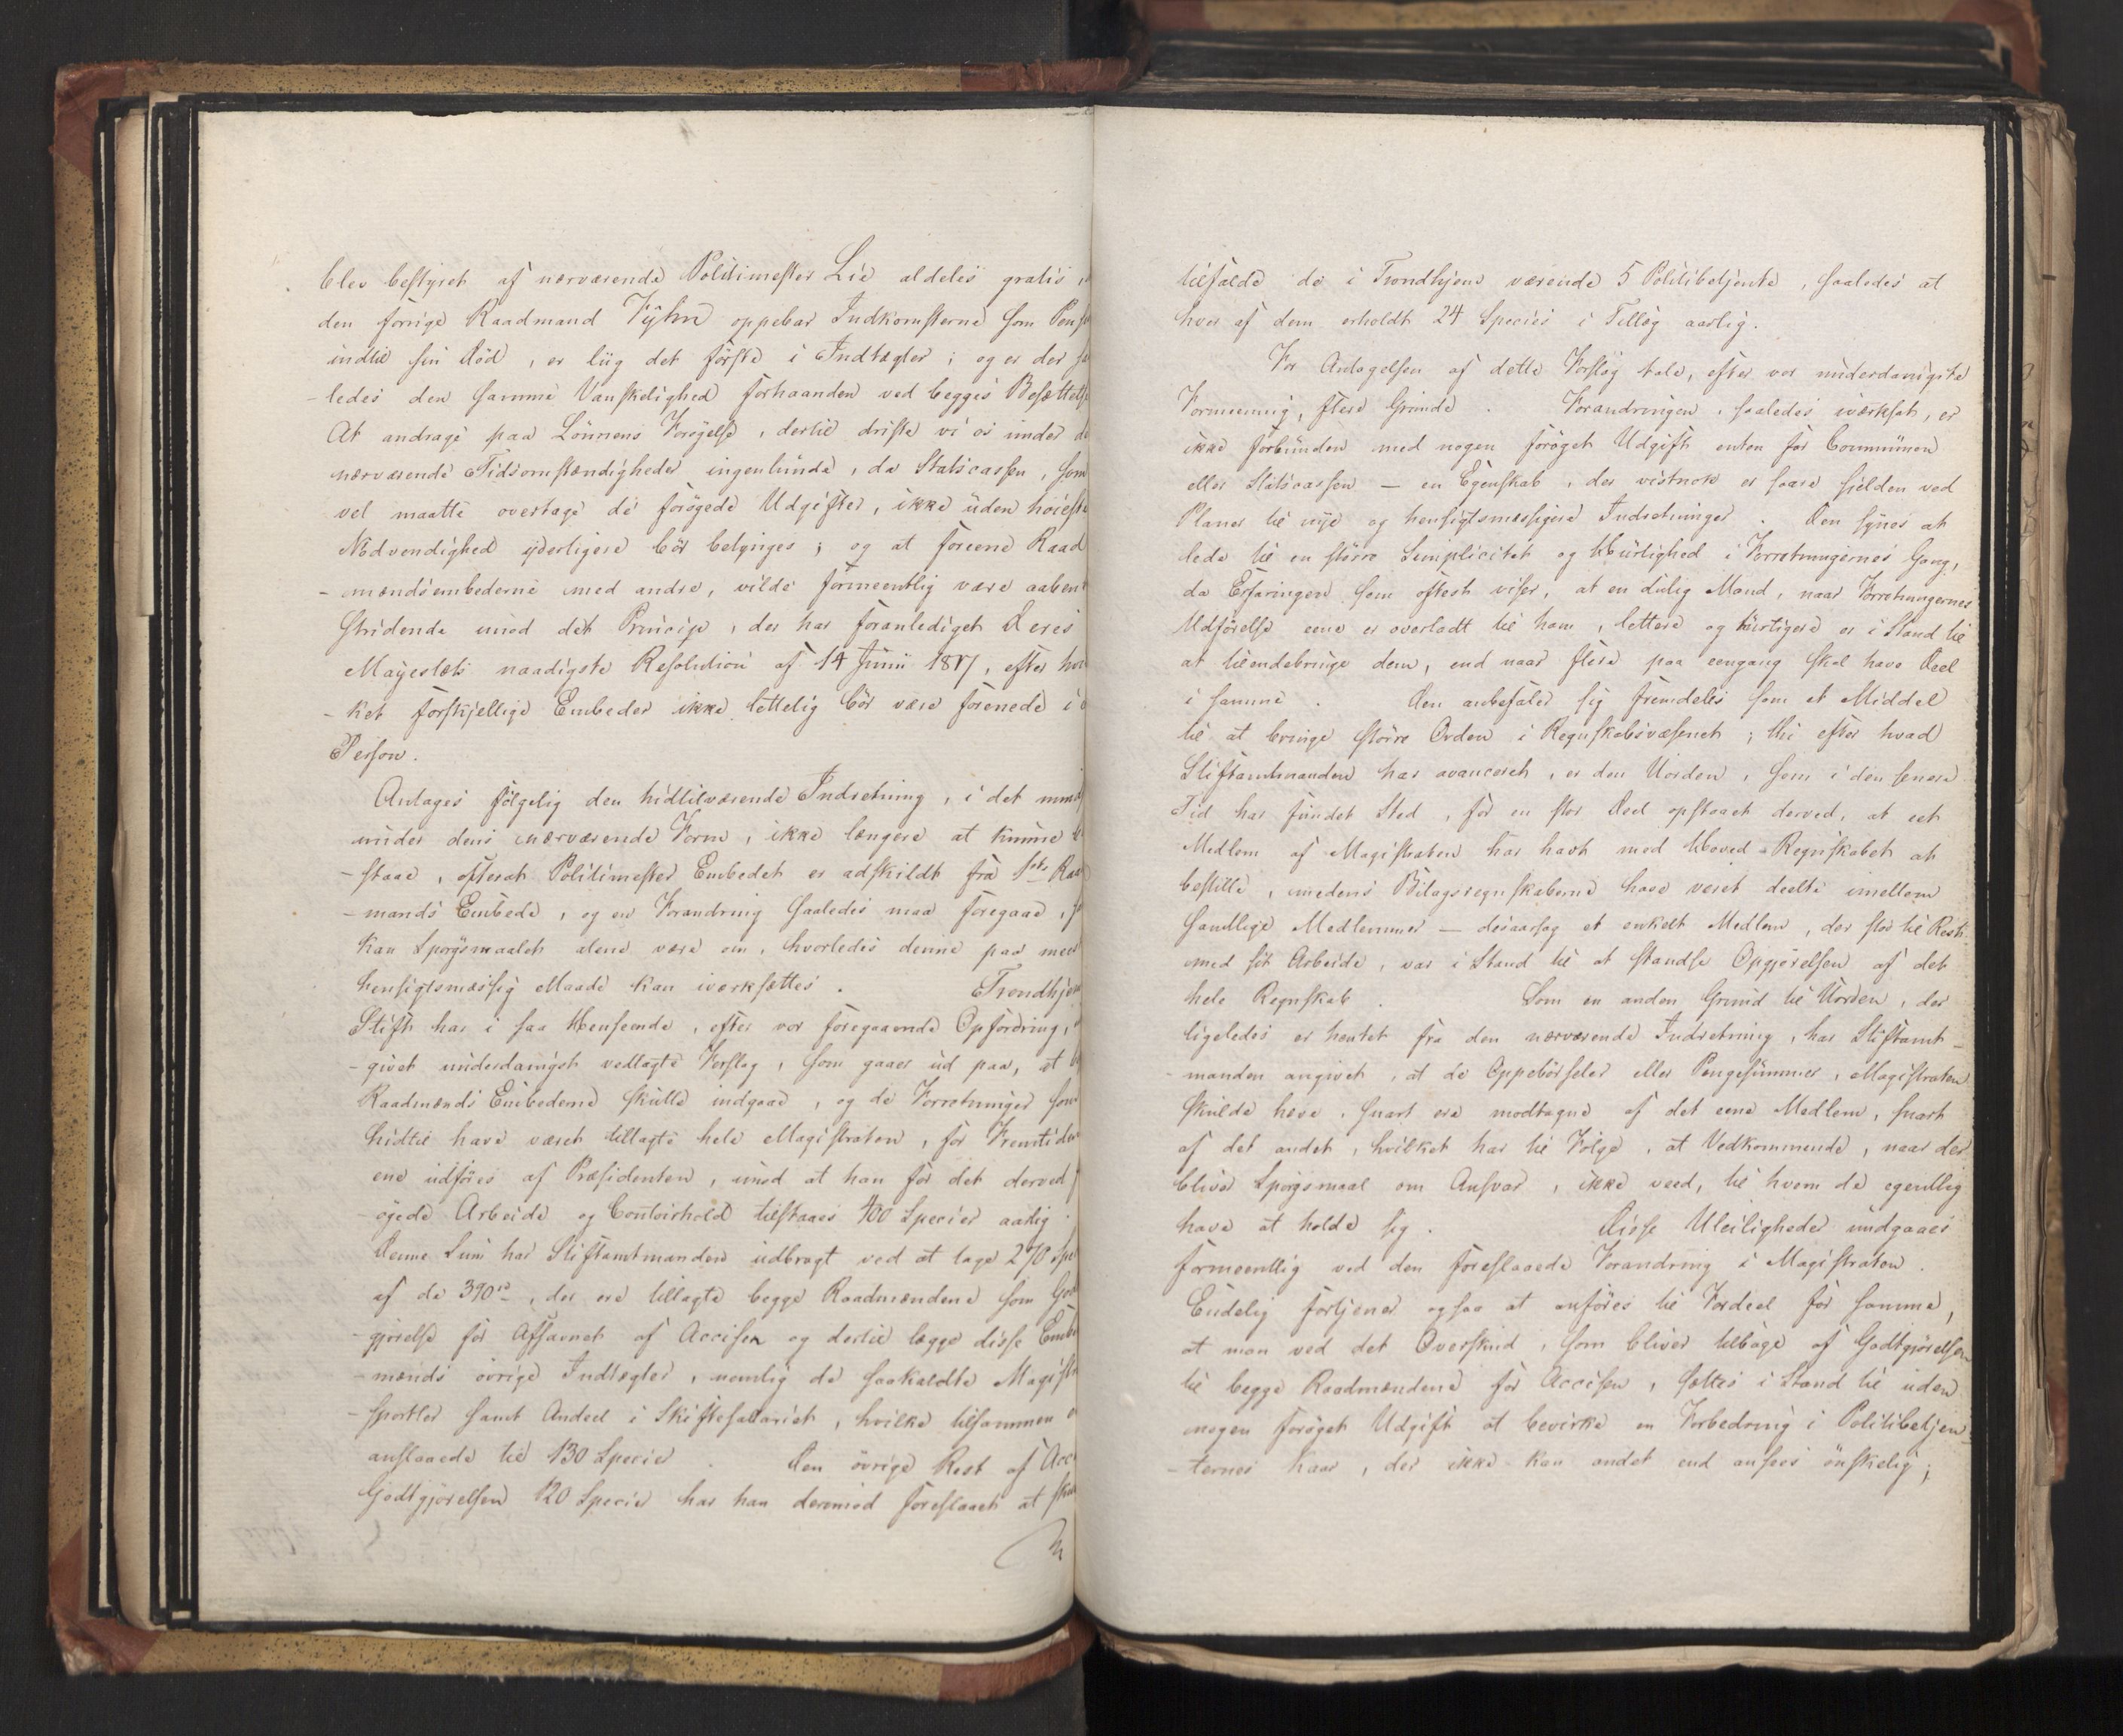 blev bestyret af nærværende Politimester Lie aldeles gratis,
den forrige Raadmand Fyhn oppebar Indkomsterne som Pens
indtil sin Död, er liig det förste i Indtægter; og er der så
-ledes den samme Vanskelighed forhaanden ved begges Besættelse
At andrage paa Lönnens Forögelse, dertil driste vi os under de
nærværende Tidsomstændigheder ingenlunde, da Statscassen, som
vel maatte overtage de forögede Udgifter, ikke uden höieste
Nödvendighed yderligere bör betynges; og at forene Raad
-mandsembederne med andre, vilde formeentlig være aabent
stridende imod det Princip, der har foranlediget Deres
Majestæts naadigste Resolution af 14 Junii 1817, efter hvil
-ket forskjellige Embeder ikke lettelig bör være forenede i
Person.
Antages fölgelig den hidtilværende Indretning, i det mind
under dens nærværende Form, ikke længere at kunne be
-staae, efterat Politimester Embedet er adskildt fra Raad
-mands Embede, og en Forandring saaledes maa foregaae, så
kan Spørgsmaalet alene være om, hvorledes denne paa meest
hensigtsmæssig Maade kan iværksættes. Trondhjems
Stift har i saa Henseende, efter vor foregaaende Opfordring,
-givet underdanigst vedlagte Forslag, som gaaer ud paa, at be
Raadmands Embederne skulle indgaae, og de Forretninger som
hidtil have været tillagte hele Magistraten, for Fremtiden
ene udföres af Præsidenten, imod at han for det derved
-ögede Arbeide og Contoirhold tilstaaes 400 Species aarlig.
Denne Sum har Stiftamtmanden udbragt ved at tage 270 Spe
af de 390, der ere tillagte begge Raadmændene som God
-gjörelse for Afsavnet af Accisen og dertil lægge disse Embe
-mænds övrige Indtægter, nemlig de saakaldte Magistr
-sportler samt Andeel i Skiftesalariet, hvilke tilsammen
anslaaede til 130 Species. Den övrige Rest af Acc
Godtgjörelsen 120 Species har han derimod foreslaaet at skul
tilfalde de i Trondhjem værende 5 Politibetjente, saaledes at
hver af dem erholdt 24 Species i Tillæg aarlig.
For Antagelsen af dette Forslag tale, efter vor underdanigste
Formeening, flere Grunde. Forandringen, saaledes iværksat, er
ikke forbunden med nogen foröget Udgift enten for Communen
eller Statscassen — en Egenskab, der vistnok er saare sjelden ved
Planer til nye og hensigtsmæssigere Indretninger. Den synes at
lede til en större Simplicitet og Hurtighed i Forretningernes Gang,
da Erfaringen som oftest viser, at en duelig Mand, naar Forretningernes
Udförelse eene er overladt til ham, lettere og hurtigere er i Stand til
at tilendebringe dem, end naar flere paa eengang skal have Deel
i samme. Den anbefaler sig fremdeles som et Middel
til at bringe större Orden i Regnskabsvæsenet; thi efter hvad
Stiftamtmanden har avanceret, er den Uorden, som i den senere
Tid har fundet Sted, for en stor Deel opstaaet derved, at eet
Medlem af Magistraten har havt med Hoved-Regnskabet at
bestille, medens Bilagsregnskaberne have veret deelte imellem
samtlige Medlemmer — desaarsag et enkelt Medlem, der stod til Rest
med sit Arbeide, var i Stand til at standse Opgjörelsen af det
hele Regnskab. Som en anden Grund til Uorden, der
ligeledes er hentet fra den nærværende Indretning, har Stiftamt-
-manden angivet, at de Oppebörseler eller Pengesummer, Magistraten
skulde hæve, snart ere modtagne af det eene Medlem, snart
af det andet, hvilket har til Fölge, at Vedkommende, naar der
bliver Spörgsmaal om Ansvar, ikke veed, til hvem de egentlig
have at holde sig. Disse Uleiligheder undgaaes
formeentlig ved den foreslaaede Forandring i Magistraten.
Endelig fortjener ogsaa at anföres til Fordeel for samme,
at man ved det Overskud, som bliver tilbage af Godtgjörelsen
til begge Raadmændene for Accisen, sættes i Stand til uden
nogen foröget Udgift at bevirke en Forbedring i Politibetjen-
-ternes Kaar, der ikke kan andet end ansees önskelig;